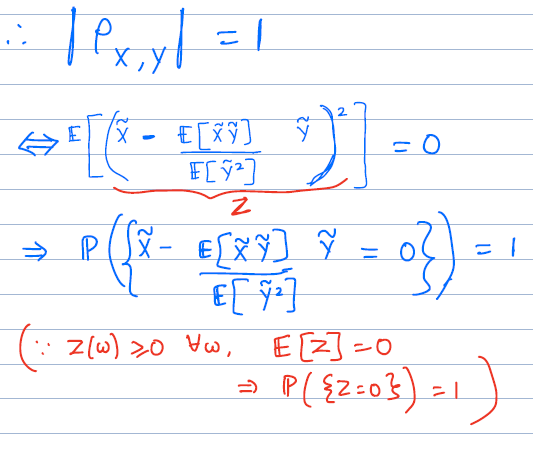 ∴ |ρ_{X,Y}| = 1
⇔ E[(X̃ - E[X̃Ỹ]/E[Ỹ²] Ỹ)²] = 0
Z
⇒ P({X̃ - E[X̃Ỹ]/E[Ỹ²] Ỹ = 0}) = 1
(∵ Z(ω) ≥ 0 ∀ω, E[Z] = 0
⇒ P({Z=0}) = 1)